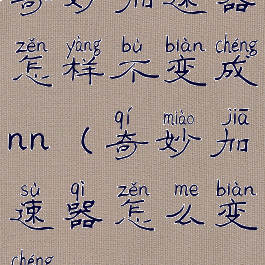 奇妙加速器
zěn yàng bù biàn chéng
怎样不变成
qí miào jiā
nn（奇妙加
sù qì zěn me biàn
速器怎么变
chéng